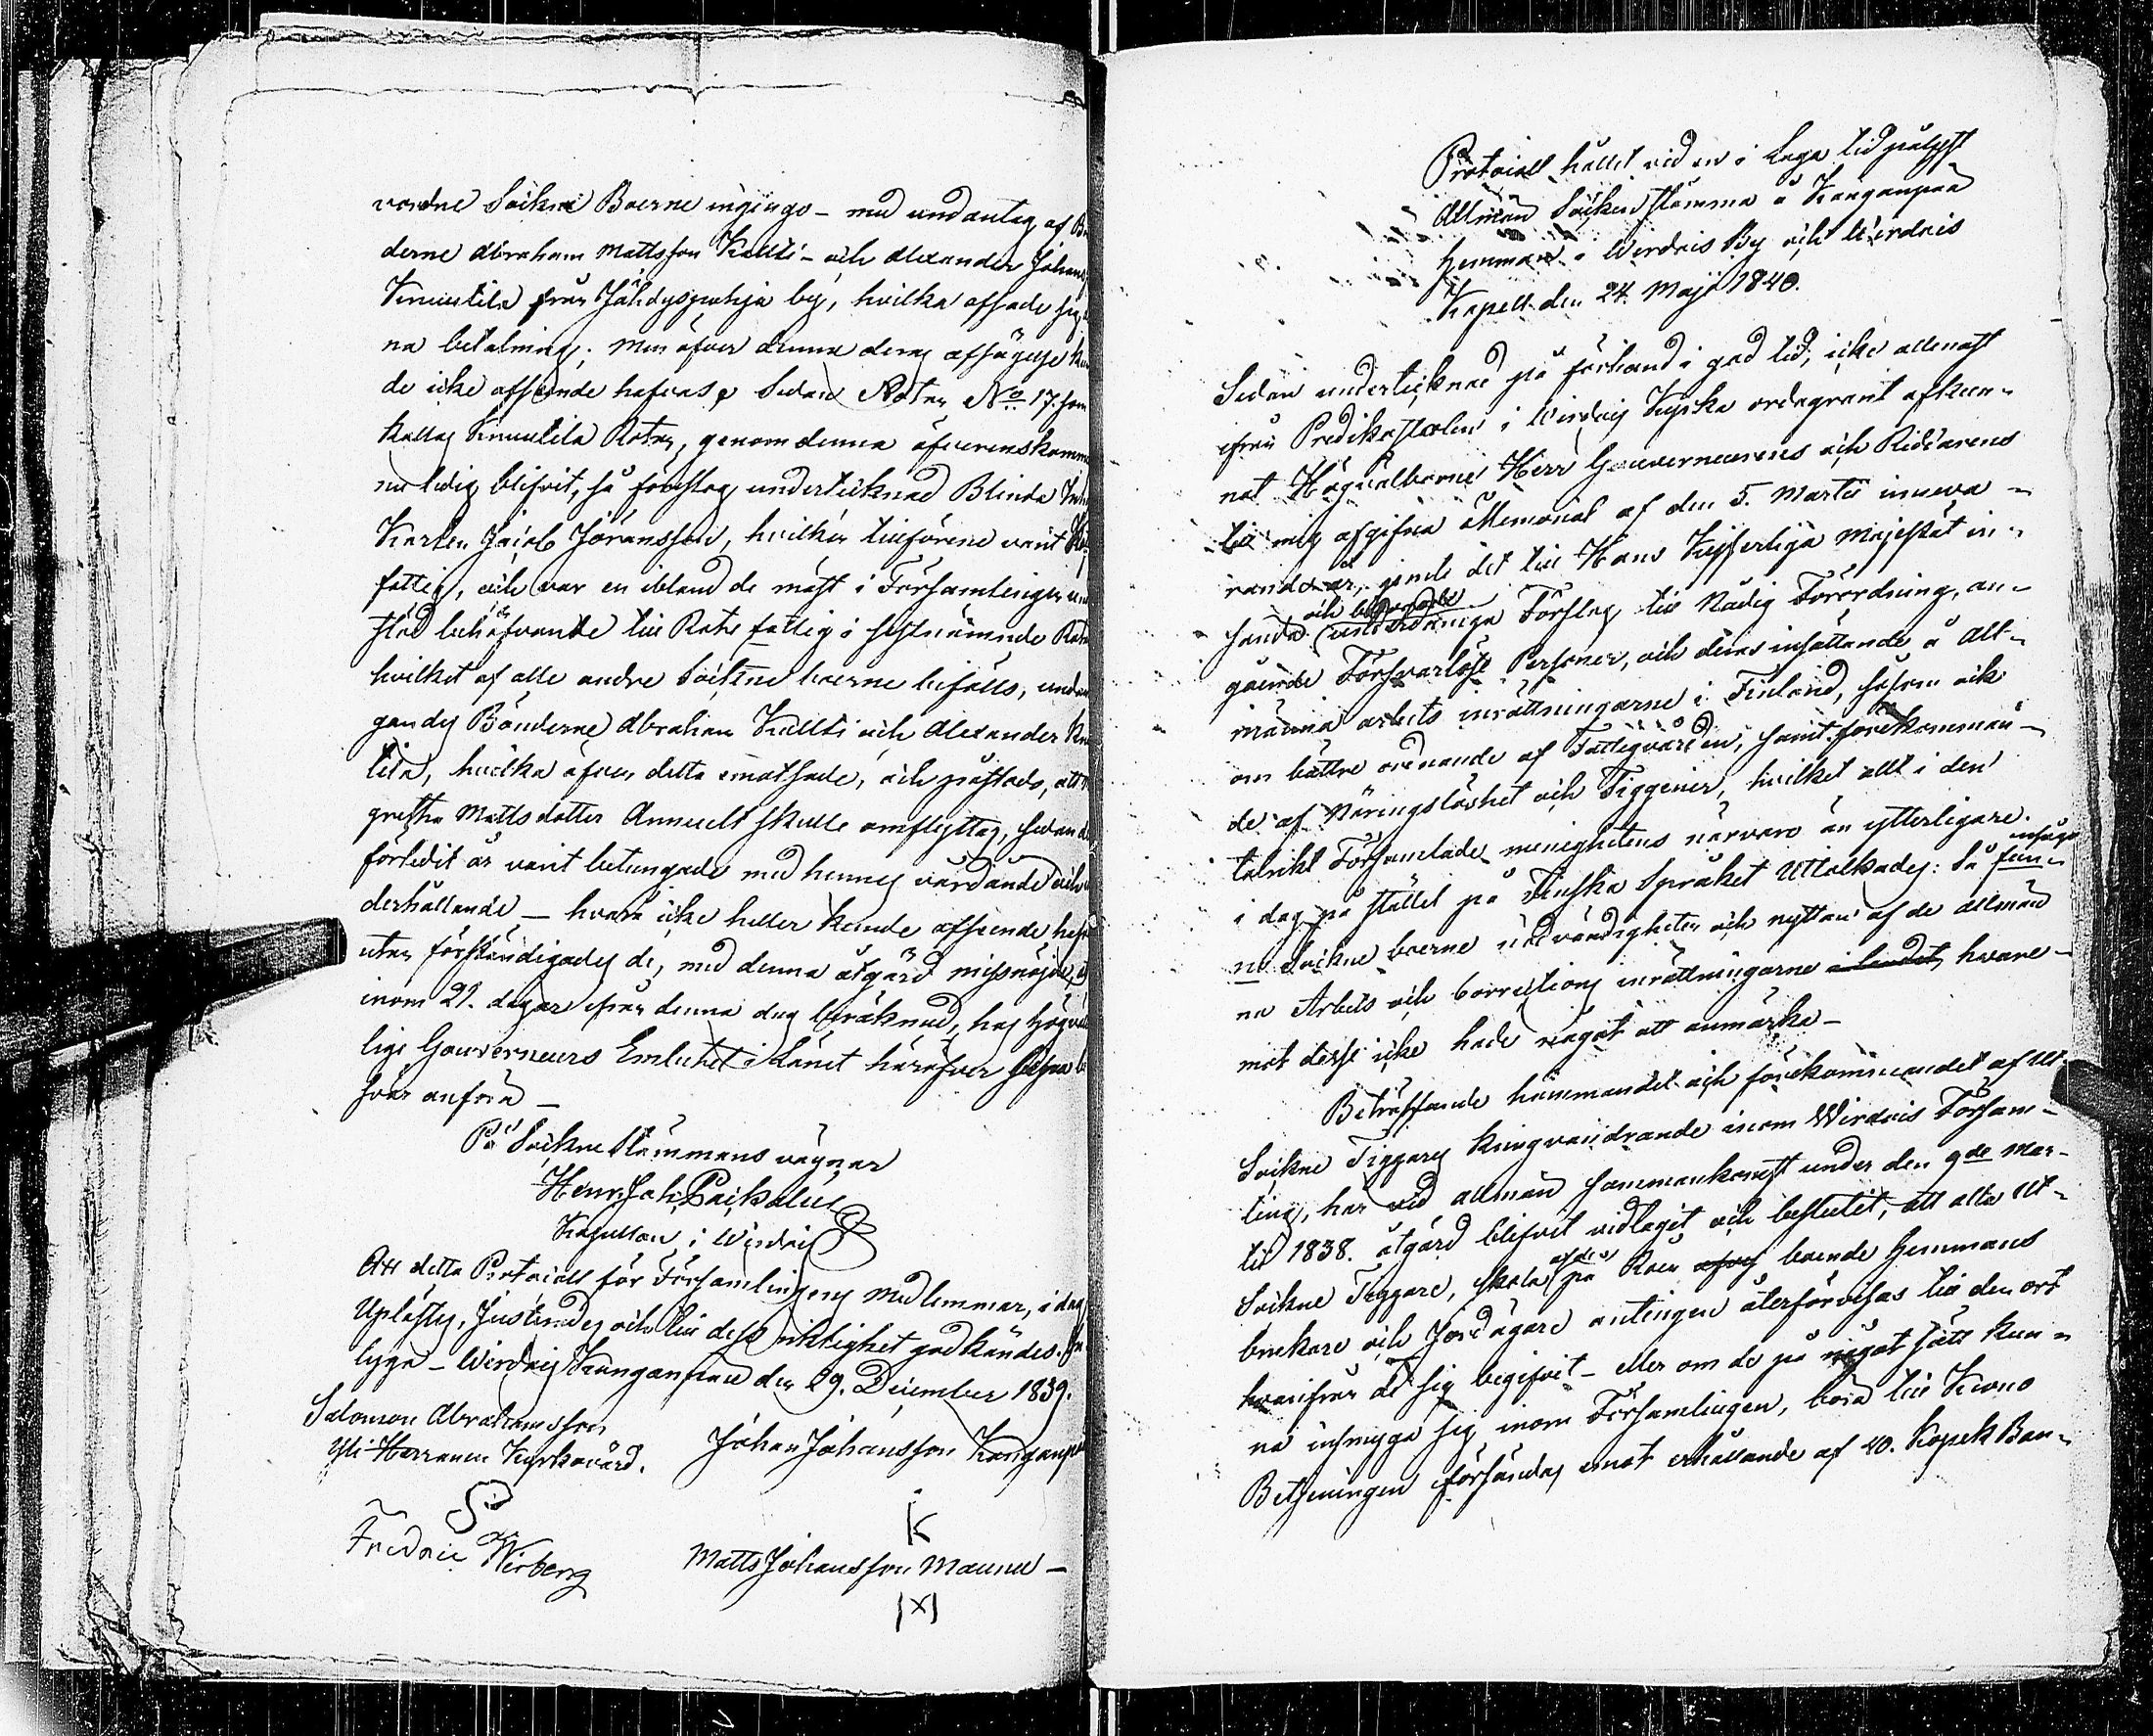 varande Sockne Boerne ingingo – med undantag af Bö
derne Abraham Mattsson Kallti – och Alexander Johans
Knuutila från Jähdyspohja by, hvilka afsade sig
na betalning; men öfver denna deras afsägelse kun
de icke afseende hafvas. Sedan Roten No 17. som
kallas Knuutila Rotes, genom denna öfverenskomme
nu ledig blifvit, så föreslog undertecknad Blinda
Karlen Jacob Jöransson, hvilken tillförene varit
fattig, och var en ibland de mäst i Församlingen un
stöd behöfvande till Rote fattig i sistnämnde Rote
hvilket af alle andre Sockne boerne bifölls, undan
gandes Bönderne Abraham Kallti och Alexander Knu
tila, hvilka äfven detta emotsade, och påstodo, att
gretha Mattsdotter Annuelt skulle omflyttas, sedan de
förledit år varit betungade med hennes vårdande och un
derhållande – hvara icke heller kunde afseende hafvas
utan förständigades de, med denna åtgärd missnöjde,
inom 21. dagar från denna dag beräknad, hos Högväl
lige Gouverneurs Embetet i Länet häröfver besvär
hvar anföra –
På Sockne Stämmans vägnar
Henr. Joh. Paikalin
Kapellan i Wirdois
Att detta Protocoll för Församlingens medlemmar, i dag
Uplästes, Justerades och till dess riktighet godkändes.
lyga – Wirdois Kanganpää den 29. December 1839.
Salomon Abrahamsson
Yli-Herranen Kyrkovärd.
Johan Johansson Kanganpää
S
K
Fredric Wirberg
Matts Johansson Maunu –
|X|
Protocoll hållet vid en i Laga tid pålyst
Allmän Sockne stämma å Kanganpää
Hemman i Wirdois By och Wirdois
Kapell den 24. Maji 1840.
Sedan undertecknad på förhand i god tid, icke allenast
från Predikostolen i Wirdois Kyrka ordagrant afkun-
nat Högvälborne Herr Gouverneurens och Riddarens
till mig afgifna Memorial af den 5. Martii inneva-
rande år, jemte det till Hans Kejserliga Majestät in-
och
sända underdåniga Förslag till Nådig Förordning, an-
gående Försvarlöse Personer, och deras insättande å All-
männa arbets inrättningarne i Finland, såsom ock
om bättre ordnande af Fattigvården, samt förekomman-
de af Näringslöshet och Tiggeri, hvilket allt i den
talrikt Församlade menighetens närvaro än ytterligare
i dag på stället på Finska Språket Uttolkades: Så
insågo
ne Sockne boerne nödvändigheten och nyttan af de allmän
na Arbets och Corrections inrättningarne i landet, hvare-
mot desse icke hade något att anmärka –
Beträffande hämmandet och förekommandet af Ut-
Sockne Tiggares kringvandrande inom Wirdois Försam-
ling, har vid allmän sammankomst under den 9de Mar-
tii 1838. åtgärd blifvit vidtagit och beslutit, att alla Ut-
af der
Sockne Tiggare, skola på boende Hemmans
brukare och Jordägare antingen återförvisas till den ort
hvarifrån de sig begifvit – eller om de på något sätt kun-
na insmyga sig inom Församlingen, böra till Krono
Betjeningen försändas emot erhållande af 40. Kopek Ban-